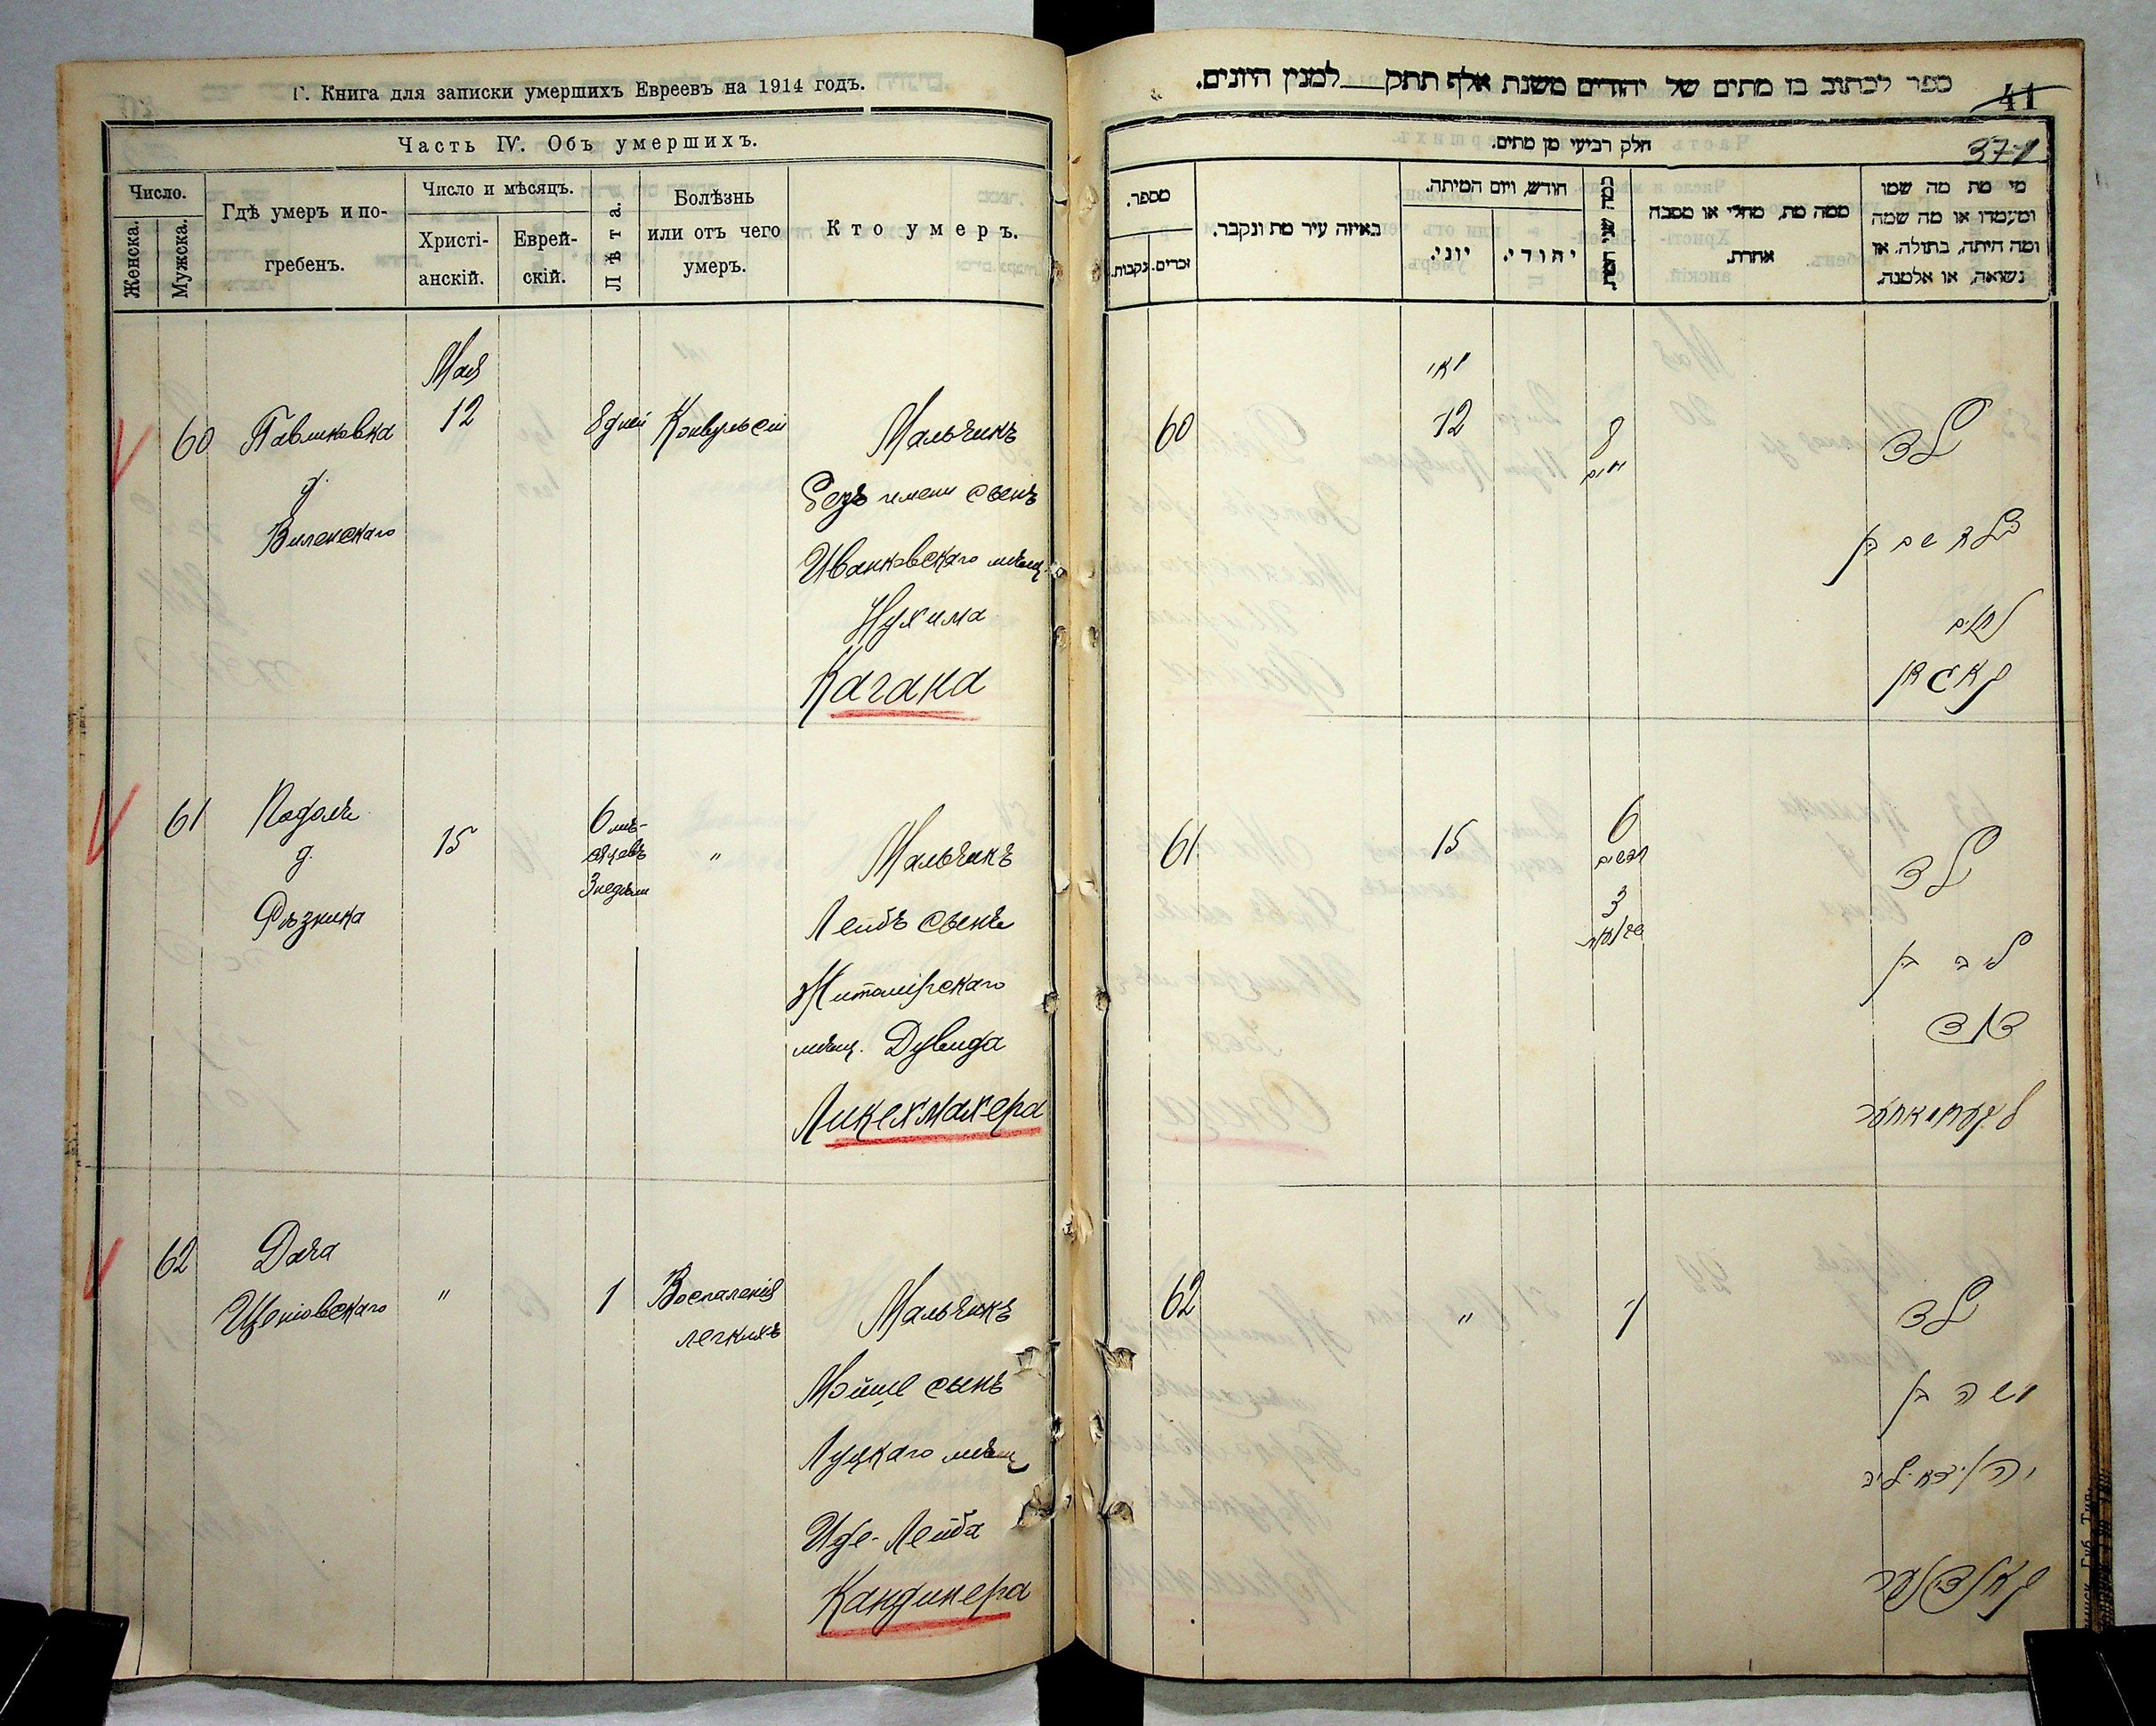 Г. Книга для записки умершихъ Евреевъ на 1914 годъ.
Часть IV. Объ умершихъ.
Число.
Женска.
Мужска.
Гдѣ умеръ и по-
гребенъ.
Число и мѣсяцъ.
Христі-
анскій.
Еврей-
скій.
Лѣта.
Болѣзнь
или отъ чего
умеръ.
Кто умеръ.
Мая
60 Павликовка 12 8 дней Конвульсіи Мальчикъ
д.
Виленскаго
безъ имени сынъ
Иванковскаго мѣщ.
Нухима
Кагана
61 Подолъ 15 6 мѣ-
сяцевъ
3 недѣли
"
д.
Рѣзника
Мальчикъ
Лейбъ сынъ
Житомірскаго
мѣщ. Дувида
Ликехмахера
62 Дача
Щеніовскаго " 1 Воспаленія
легкихъ
Мальчикъ
Мойше сынъ
Луцкаго мѣщ
Иде-Лейба
Кандинера
ספר לכתוב בו מתים של יהודים משנת אלף תתק___למנין היונים.
41
371
חלק רביעי מן מתים.
מספר.
זכרים.
נקבות.
באיזה עיר מת ונקבר.
חודש, ויום המיתה.
יוני.
יהודי.
כמה שני המת.
ממה מת, מחלי או מסבה
אחרת.
מי מת מה שמו
ומעמדו או מה שמה
ומה היתה, בתולה. או
נשואה, או אלמנה.
מאי
60 12 8
ימים
ילד
בלא שם בן
נחום
קאגאן
61 15 6
חדשים
3
שבועות
ילד
ליב בן
דוד
לעקעכמאכער
62 " 1
ילד
משה בן
יהודא ליב
קאנדינער